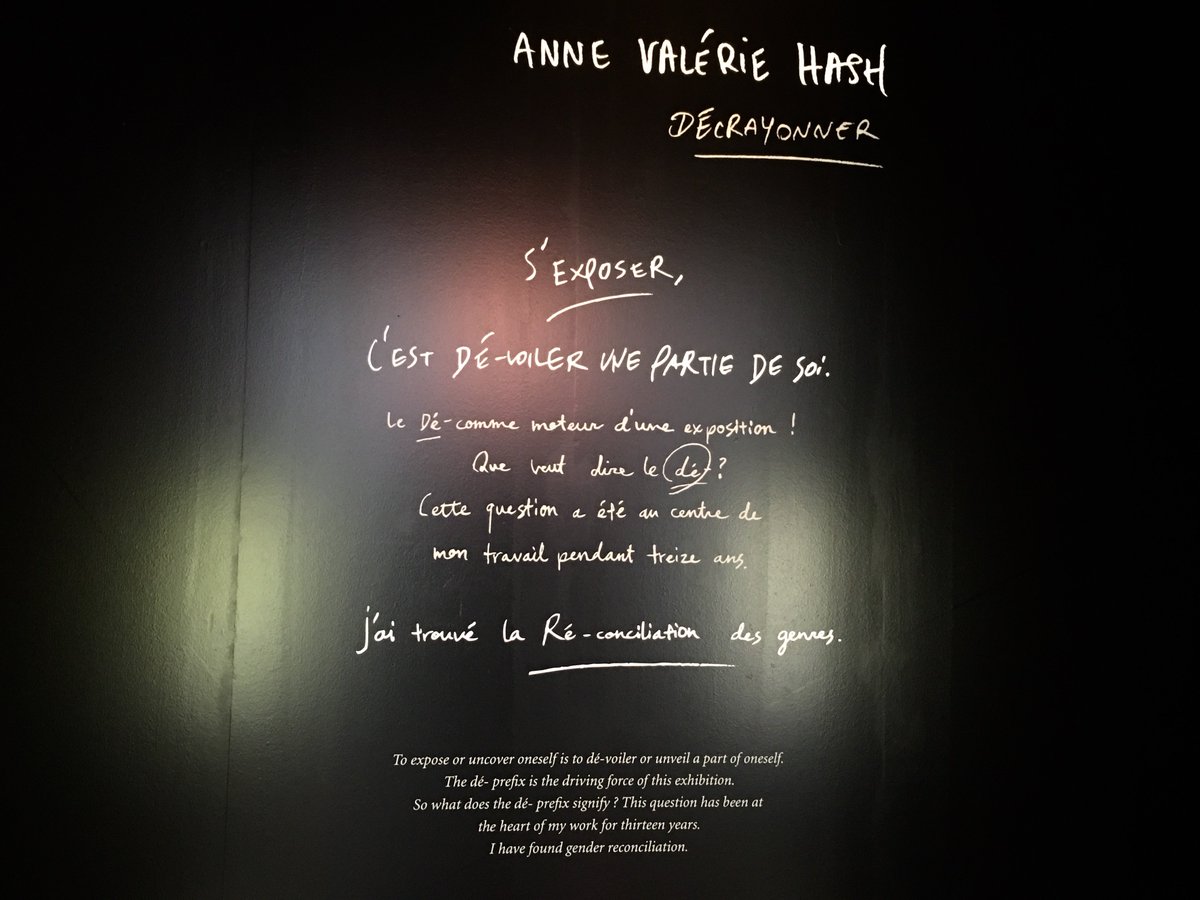 ANNE VALÉRIE HASH
DÉCRAYONNER
S'EXPOSER,
C'EST DÉ-VOILER UNE PARTIE DE SOi.
Le Dé-comme moteur d'une exposition !
Que veut dire le dé- ?
Cette question a été au centre de
mon travail pendant treize ans.
j'ai trouvé la Ré-conciliation des genres.
To expose or uncover oneself is to dé-voiler or unveil a part of oneself.
The dé- prefix is the driving force of this exhibition.
So what does the dé- prefix signify ? This question has been at
the heart of my work for thirteen years.
I have found gender reconciliation.